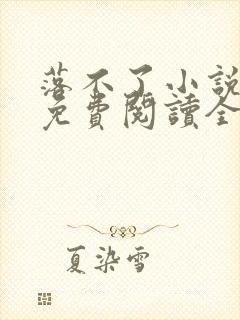 落不了小說
免費閱讀全
夏染雪